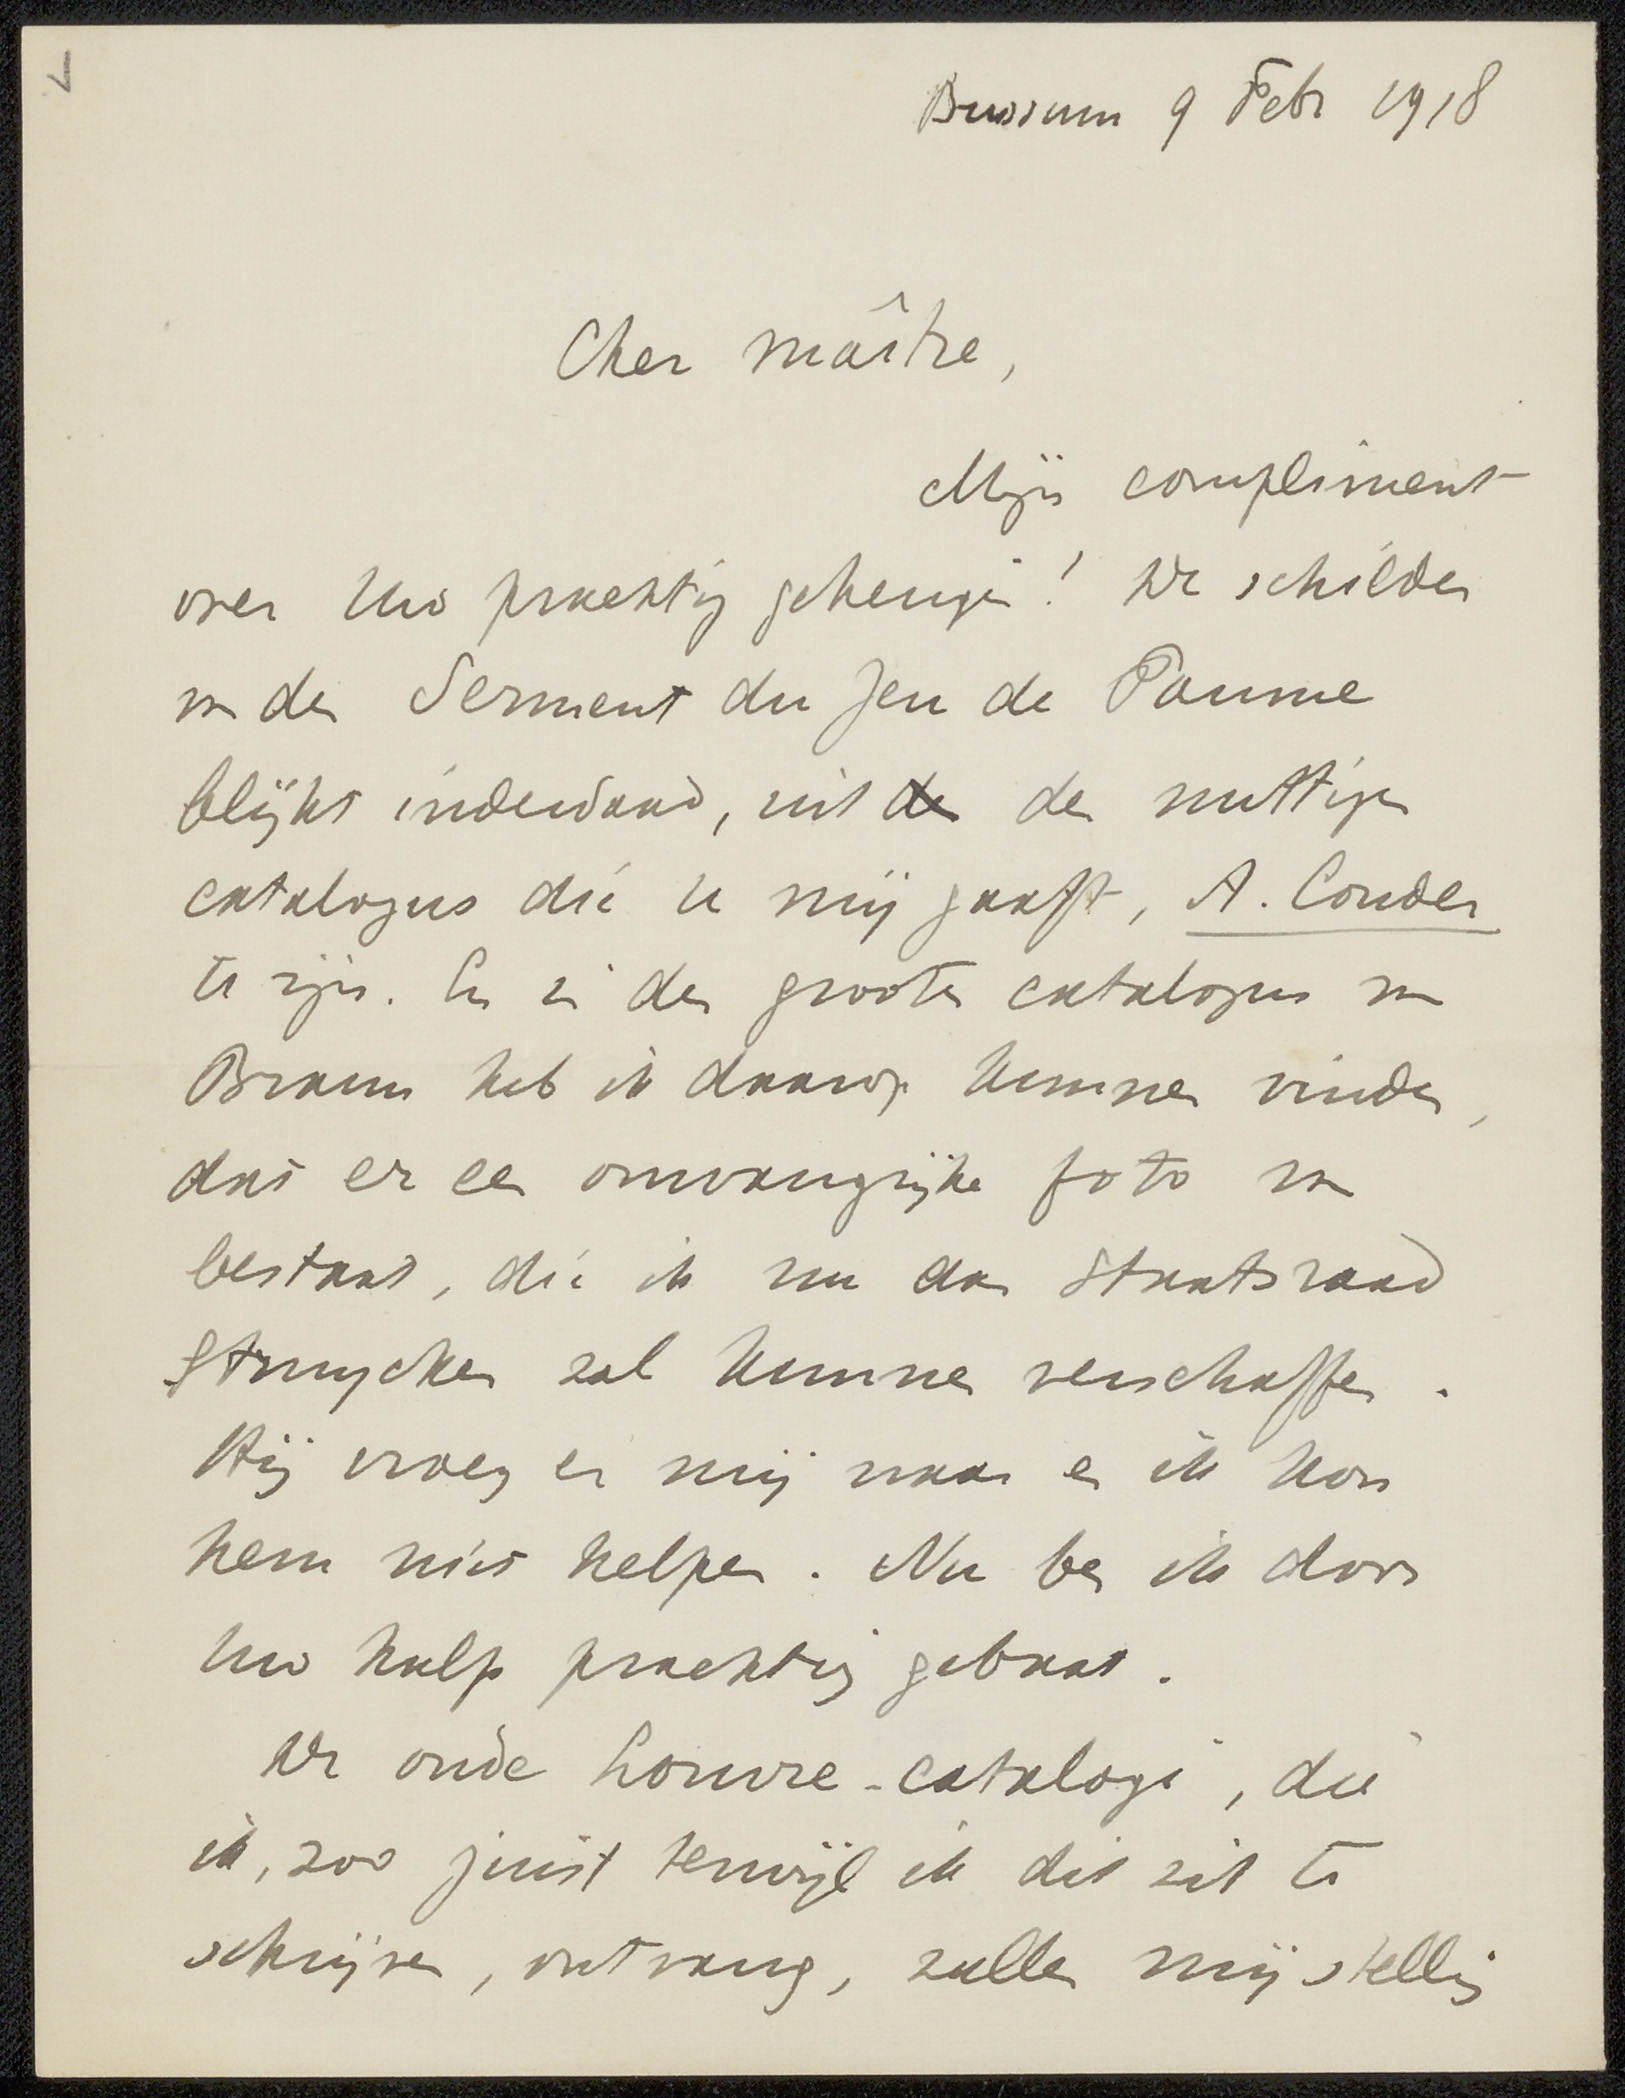 Bussum 9 Febr 1918
Cher maître,
Mijn compliment
over Uw prachtig geheugen! De schilder
van den Serment du Jeu de Paume
blijkt inderdaad, uit den den nuttigen
catalogus die U mij gaaft, A. Couder
te zijn. En in den grooten catalogus van
Braun heb ik daarop kunnen vinden,
dat er een omvangrijke foto van
bestaat, die ik nu aan Staatsraad
Struycken zal kunnen verschaffen.
Hij vroeg er mij naar en ik kon
hem niet helpen. Nu ben ik door
Uw hulp prachtig gebaat.
De oude Louvre-catalogi, die
ik, zoo juist terwijl ik dit zit te
schrijven, ontvang, zullen mij stellig